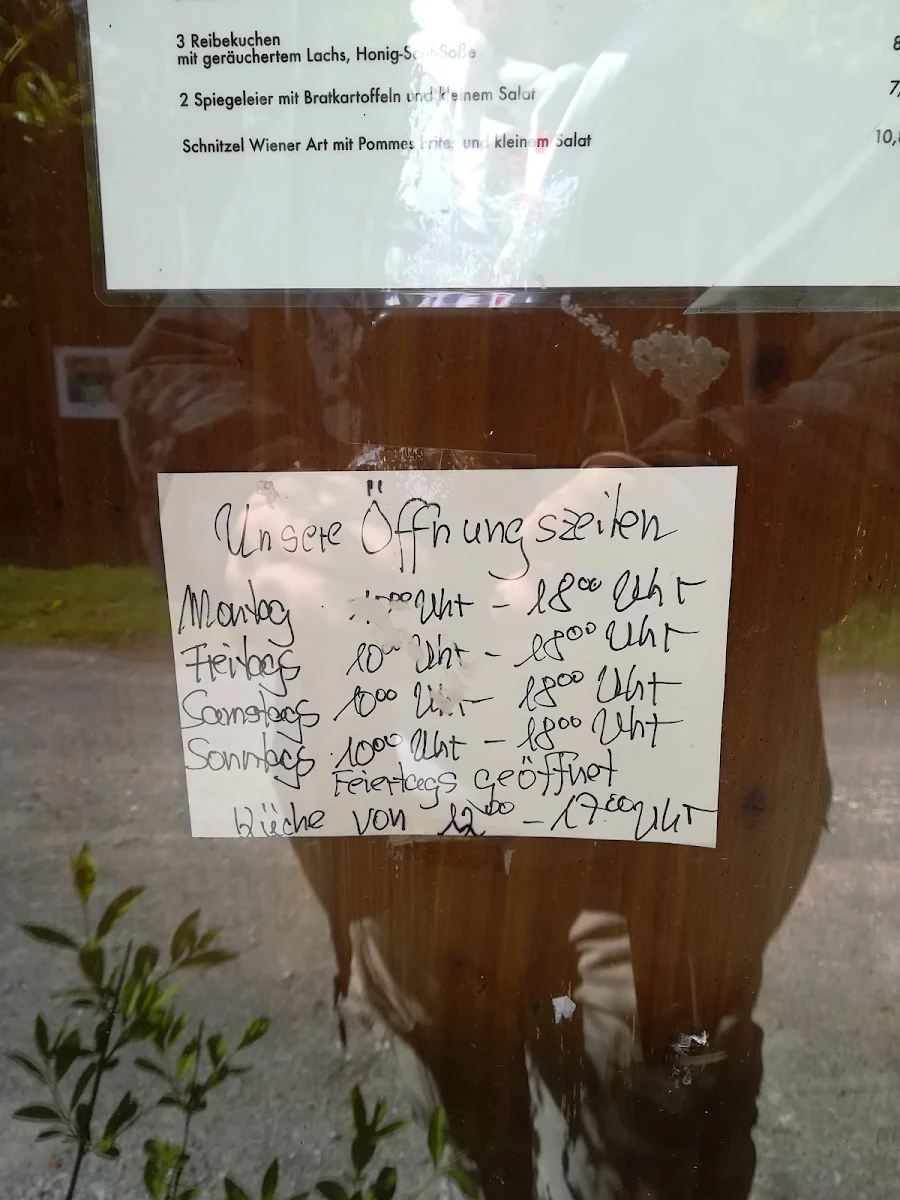 3 Reibekuchen
mit geräuchertem Lachs, Honig-Senf-Soße 8
2 Spiegeleier mit Bratkartoffeln und kleinem Salat 7,
Schnitzel Wiener Art mit Pommes Frites und kleinem Salat 10,
Unsere Öffnungszeiten
Montag Uhr - 18⁰⁰ Uhr
Freitags 10⁰⁰ Uhr - 18⁰⁰ Uhr
Samstags 10⁰⁰ Uhr - 18⁰⁰ Uhr
Sonntags 10⁰⁰ Uhr - 18⁰⁰ Uhr
Feiertags geöffnet
Küche von 12⁰⁰ - 17:⁰⁰ Uhr